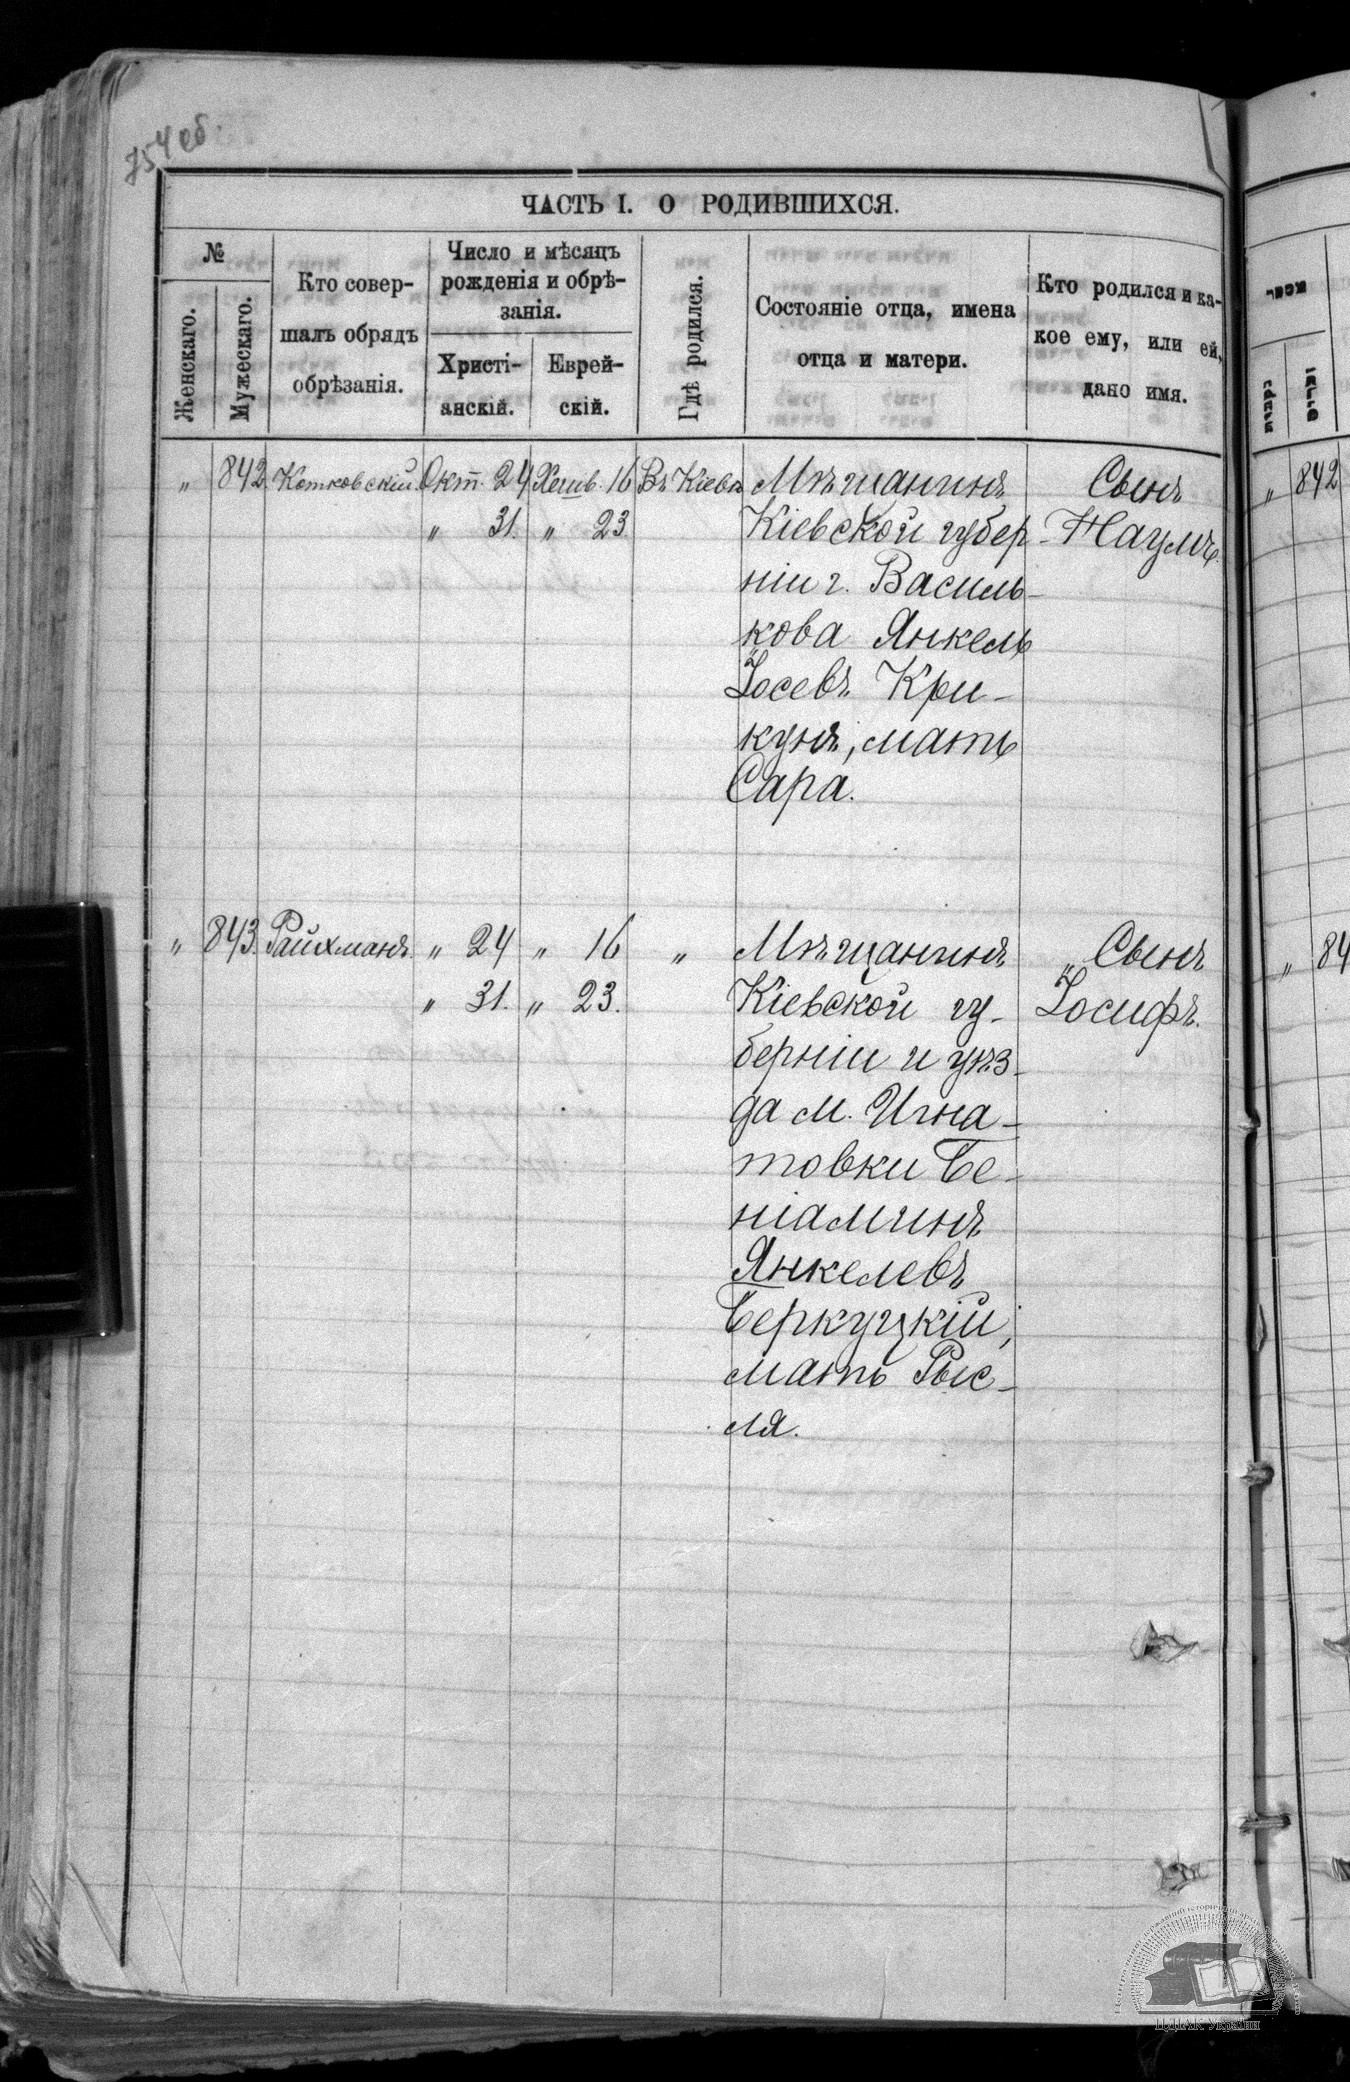 754 об.
ЧАСТЬ I. О РОДИВШИХСЯ.
№
Женскаго.
Мужескаго.
Кто совер-
шалъ обрядъ
обрѣзанія.
Число и мѣсяцъ
рожденія и обрѣ-
занія.
Христі-
анскій.
Еврей-
скій.
Гдѣ родился.
Состояніе отца, имена
отца и матери.
Кто родился и ка-
кое ему, или ей,
дано имя.
„ 842. Котковскій. Окт. 24 Хешв. 16 Въ Кіевѣ Мѣщанинъ Сынъ
„ 31. „ 23. Кіевской губер- Наумъ.
ніи г. Василь-
кова Янкель
Іосевъ Кри-
кунъ, мать
Сара.
„ 843. Райхманъ. „ 24 „ 16 „ Мѣщанинъ Сынъ
„ 31. „ 23. Кіевской гу- Іосифъ.
берніи и уѣз-
да м. Игна-
товки Бе-
ніаминъ
Янкелевъ
Беркуцкій,
мать Рыс-
ля.
נקבות
זכרים
„ 842
„ 84
ЦДІАК України